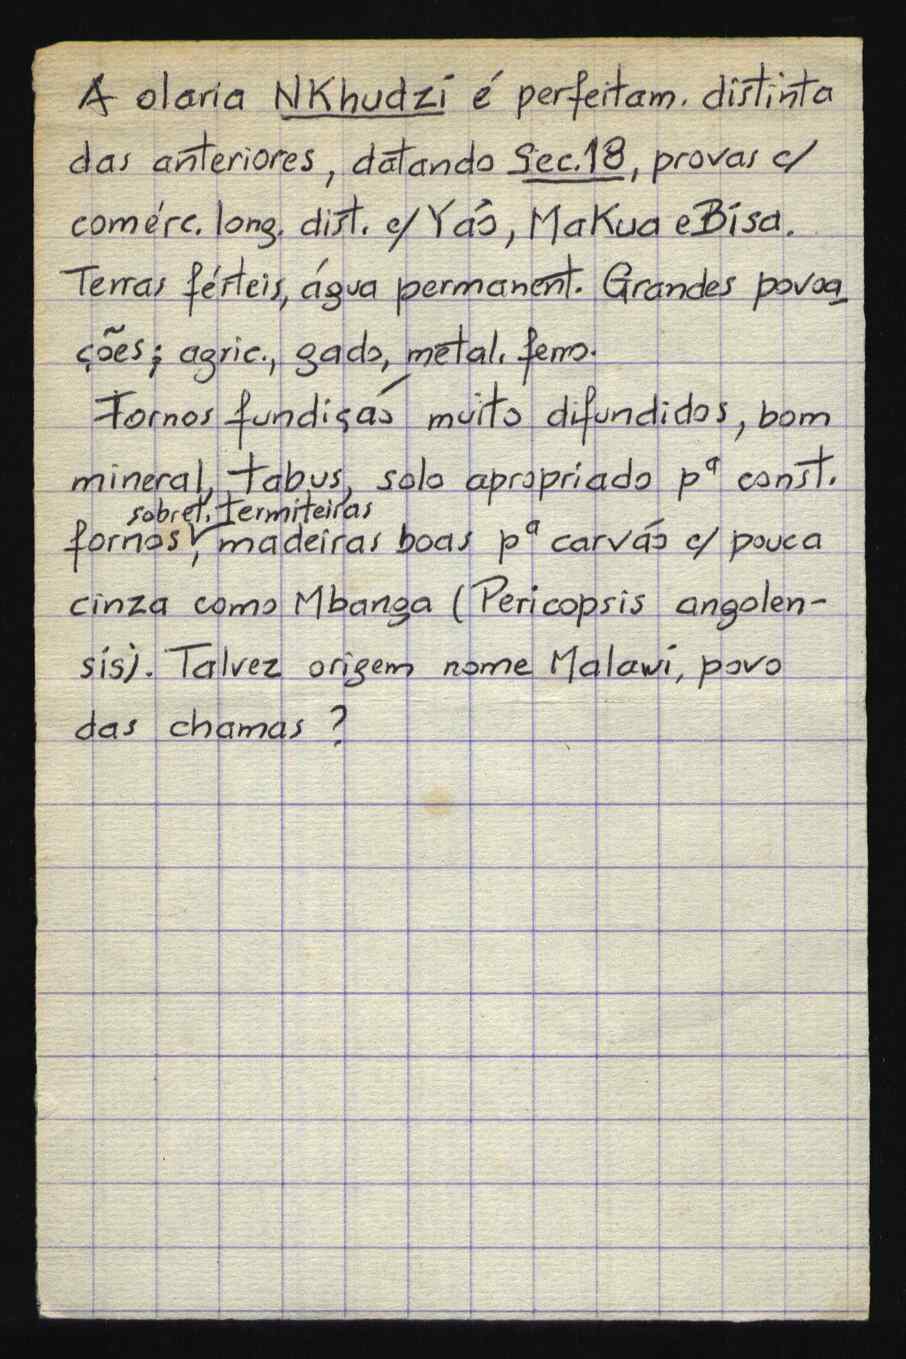 A olaria NKhudzi é perfeitam. distinta
das anteriores, datando Sec.18, provas c/
comérc. long. dist. c/ Yao, MaKua e Bisa.
Terras férteis, água permanent. Grandes povoa
ções; agric., gado, metal. ferro.
Fornos fundição muito difundidos, bom
mineral, tabus, solo apropriado pª const.
sobret. termiteiras
fornos, madeiras boas pª carvão c/ pouca
cinza como Mbanga (Pericopsis angolen-
sis). Talvez origem nome Malawi, povo
das chamas?